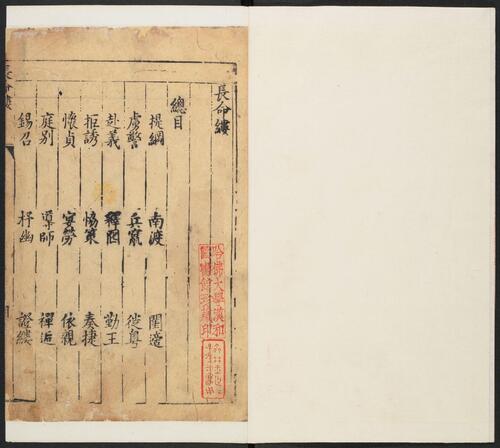 長命縷
總目
提綱 南渡 閨
虜警 兵竄 從粵
赴義 釋 勤王
拒誘 恊策 奏捷
懷貞 宴勞 依親
庭別 導師 禪逅
錫召 抒幽 證縷
長命縷
哈佛大學漢和
圖書館珍藏印